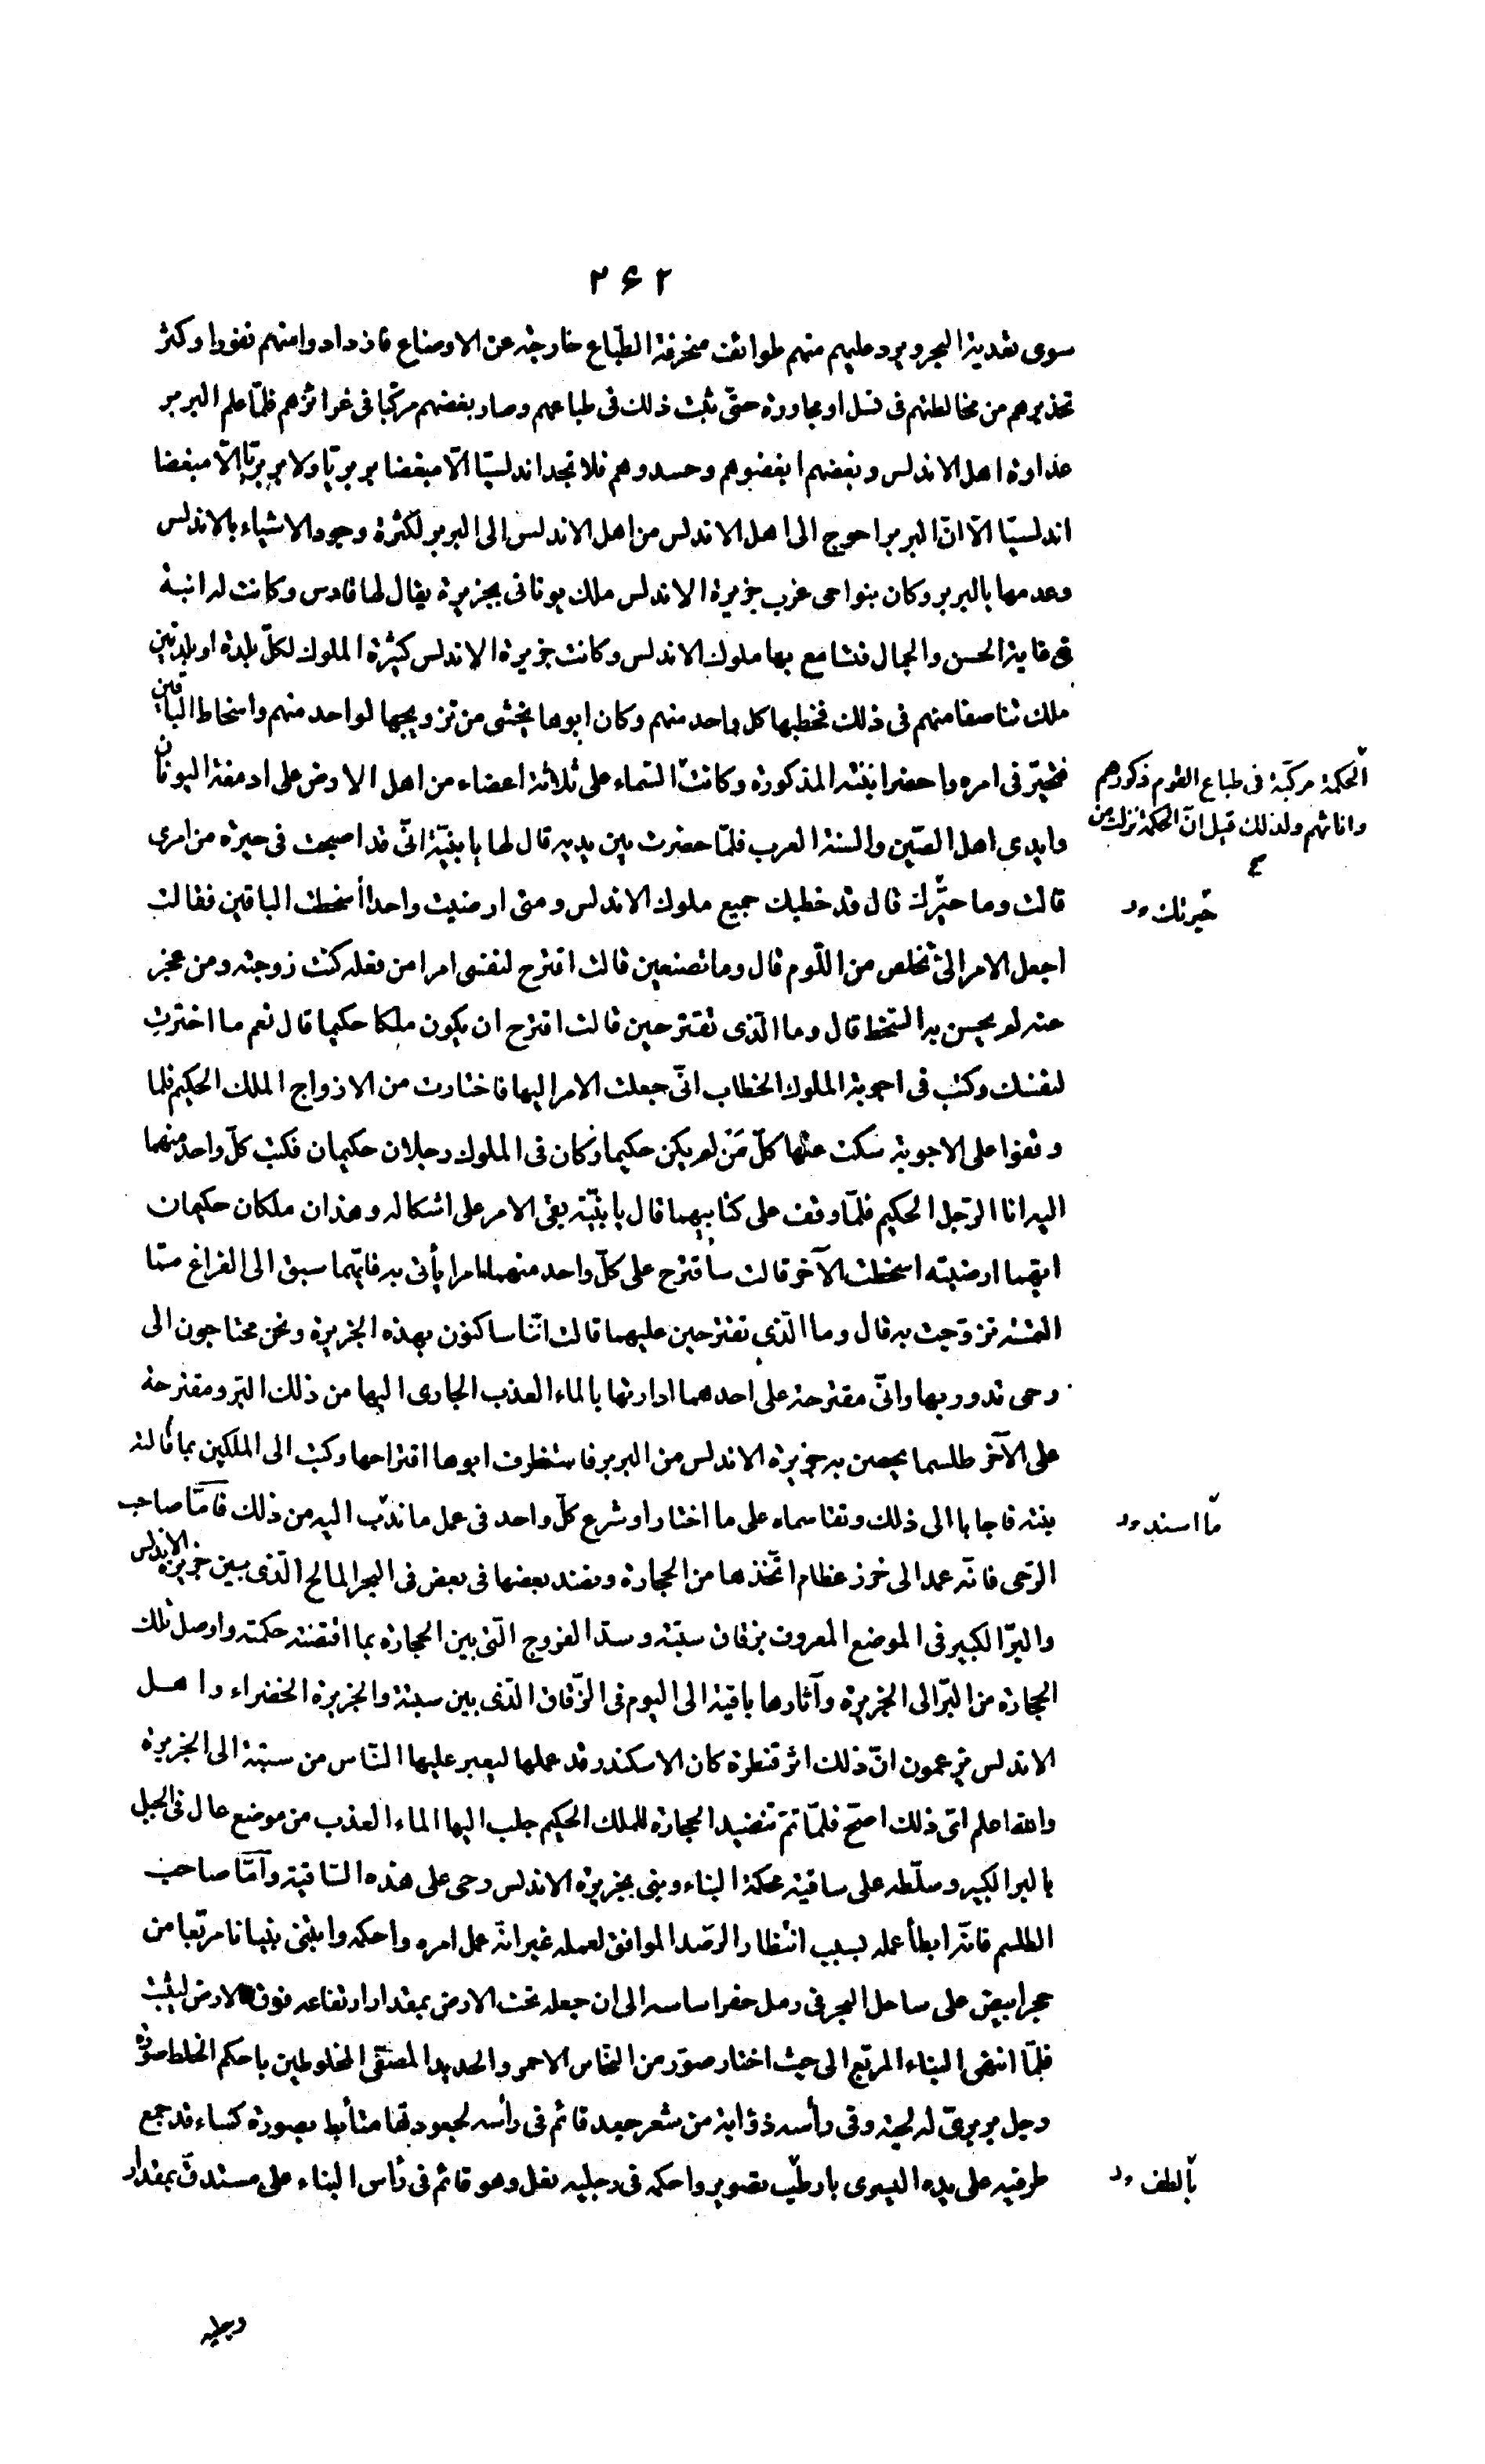 ۲۶۲
سوى تعدية البحر ويرد عليهم منهم طوائف منحرفة الطباع خارجة عن الاوضاع فازدادوا منهم نفورا وكثر
تحذيرهم من مخالطتهم فى نسل او مجاورة حتّى ثبت ذلك فى طباعهم وصار بغضهم مركّبا فى غرائزهم فلمّا علم البربر
عداوة اهل الاندلس وبغضهم ابغضوهم وحسدوهم فلا تجد اندلسيّا الّا مبغضا بربريّا ولا بربريّا الّا مبغضا
اندلسيّا الّا انّ البربر احوج الى اهل الاندلس من اهل الاندلس الى البربر لكثرة وجود الاشياء بالاندلس
وعدمها بالبربر وكان بنواحى غرب جزيرة الاندلس ملك يونانى بجزيرة يقال لها قادس وكانت له ابنة
فى غاية الحسن والجمال فتسامع بها ملوك الاندلس وكانت جزيرة الاندلس كثيرة الملوك لكلّ بلدة او بلدتين
ملك تناصفا منهم فى ذلك فخطبها كل واحد منهم وكان ابوها يخشى من تزويجها لواحد منهم واسخاط الباقين
فتحيّر فى امره واحضر ابنته المذكورة وكانت السّماء على ثلاثة اعضاء من اهل الارض على ادمغة اليونان
وايدى اهل الصّين والسنة العرب فلمّا حضرت بين يديه قال لها يا بنيّة انّى قد اصبحت فى حيرة من امرى
قالت وما حيّرك قال قد خطبك جميع ملوك الاندلس ومتى ارضيت واحدا أسخطت الباقين فقالت
اجعل الامر الىّ تخلص من اللّوم قال وما تصنعين قالت اقترح لنفسى امرا من فعله كنت زوجته ومن عجز
عنه لم يحسن به السّخط قال وما الّذى تقترحين قالت اقترح ان يكون ملكا حكيما قال نعم ما اخترت
لنفسك وكتب فى اجوبة الملوك الخطاب انّى جعلت الامر اليها فاختارت من الازواج الملك الحكيم فلما
وقفوا على الاجوبة سكت عنها كلّ مَن لم يكن حكيما وكان فى الملوك رجلان حكيمان فكتب كلّ واحد منهما
اليه انا الرّجل الحكيم فلمّا وقف على كتابيهما قال يا بنيّة بقى الامر على اشكاله وهذان ملكان حكيمان
ايّهما ارضيته اسخطت الآخر قالت سأقترح على كلّ واحد منهما امرا يأتى به فايّهما سبق الى الفراغ ممّا
التمسته تزوّجت به قال وما الّذى تقترحين عليهما قالت انّنا ساكنون بهذه الجزيرة ونحن محتاجون الى
رحى تدور بها وانّى مقترحة على احدهما ادارتها بالماء العذب الجارى اليها من ذلك البرّ ومقترحة
على الآخر طلسما يحصن به جزيرة الاندلس من البربر فاستظرف ابوها اقتراحها وكتب الى الملكين بما قالته
بنته فاجابا الى ذلك وتقاسماه على ما اختارا وشرع كلّ واحد فى عمل ما ندب اليه من ذلك فامّا صاحب
الرّحى فانّه عمد الى خرز عظام اتّخذها من الحجارة ونضد بعضها فى بعض فى البحر المالح الّذى بين جزيرة الاندلس
والبرّ الكبير فى الموضع المعروف بزقاق سبتة وسدّ الفروج الّتى بين الحجارة بما اقتضته حكمته واوصل تلك
الحجارة من البرّ الى الجزيرة وآثارها باقية الى اليوم فى الزّقاق الّذى بين سبتة والجزيرة الخضراء واهل
الاندلس يزعمون انّ ذلك اثر قنطرة كان الاسكندر قد عملها ليعبر عليها النّاس من سبتة الى الجزيرة
والله اعلم اىّ ذلك اصحّ فلمّا تمّ تنضيد الحجارة للملك الحكيم جلب اليها الماء العذب من موضع عال فى الجبل
بالبر الكبير وسلّطه على ساقية محكمة البناء وبنى بجزيرة الاندلس رحى على هذه السّاقية وأمّا صاحب
الطلسم فانّه ابطأ عمله بسبب انتظار الرّصد الموافق لعمله غير انّه عمل امره واحكمه وابتنى بنيانا مربّعا من
حجر ابيض على ساحل البحر فى رمل حفر اساسه الى ان جعله تحت الارض بمقدار ارتفاعه فوق الارض ليثبت
فلمّا انتهى البناء المربّع الى حيث اختار صوّر من النّحاس الاحمر والحديد المصفّى المخلوطين باحكم الخلط صورة
رجل بربرىّ له لحية وفى رأسه ذؤابة من شعر جعد قائم فى رأسه لجعودتها متأبط بصورة كساء قد جمع
طرفيه على يده اليسرى بارطب تصوير واحكمه فى رجليه نعل وهو قائم فى رأس البناء على مستدقّ بمقدار
الحكمة مركّبة فى طباع القوم ذكورهم
واناثهم ولذلك قيل انّ الحكمة نزلت من
حيرتك
ما اسند
بألطف
رجليه